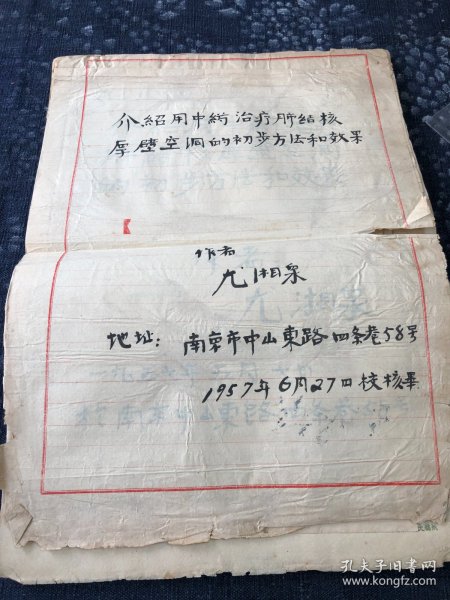 介紹用中药治疗肺结核
厚壁空洞的初步方法和效果
作者
尤湘泉
地址：南京市中山東路四条巷58号
1957年6月27日校核畢
孔夫子旧书网
www.kongfz.com